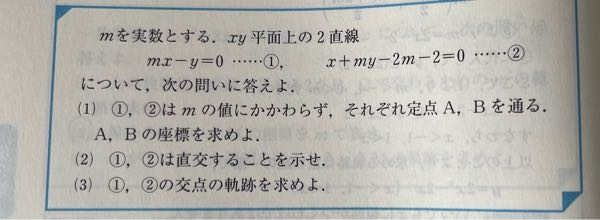 mを実数とする．xy平面上の2直線
mx－y＝0 ……①，　x＋my－2m－2＝0 ……②
について，次の問いに答えよ．
(1) ①，②はmの値にかかわらず，それぞれ定点A，Bを通る．
A，Bの座標を求めよ．
(2) ①，②は直交することを示せ．
(3) ①，②の交点の軌跡を求めよ．